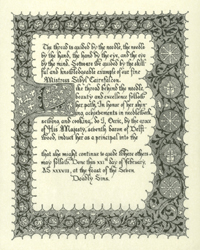 The thread is guided by the needle, the needle
by the hand, the hand by the eye, and the eye
by the mind. So too are we guided by the skill-
ful and knowledgeable example of our fine
Mistress Sabyl Cairnfalcon.
the thread behind the needle,
beauty and excellence follow
her path. In honor of her spin-
ning, achievements in needlework,
scribing and cooking, do I, Baric, by the grace
of His Majesty, seventh baron of Delft
wood, induct her as a principal into the
that she might continue to guide where others
may follow. Done this day of February,
AS XXXVIII, at the feast of the Seven
Deadly Sins.